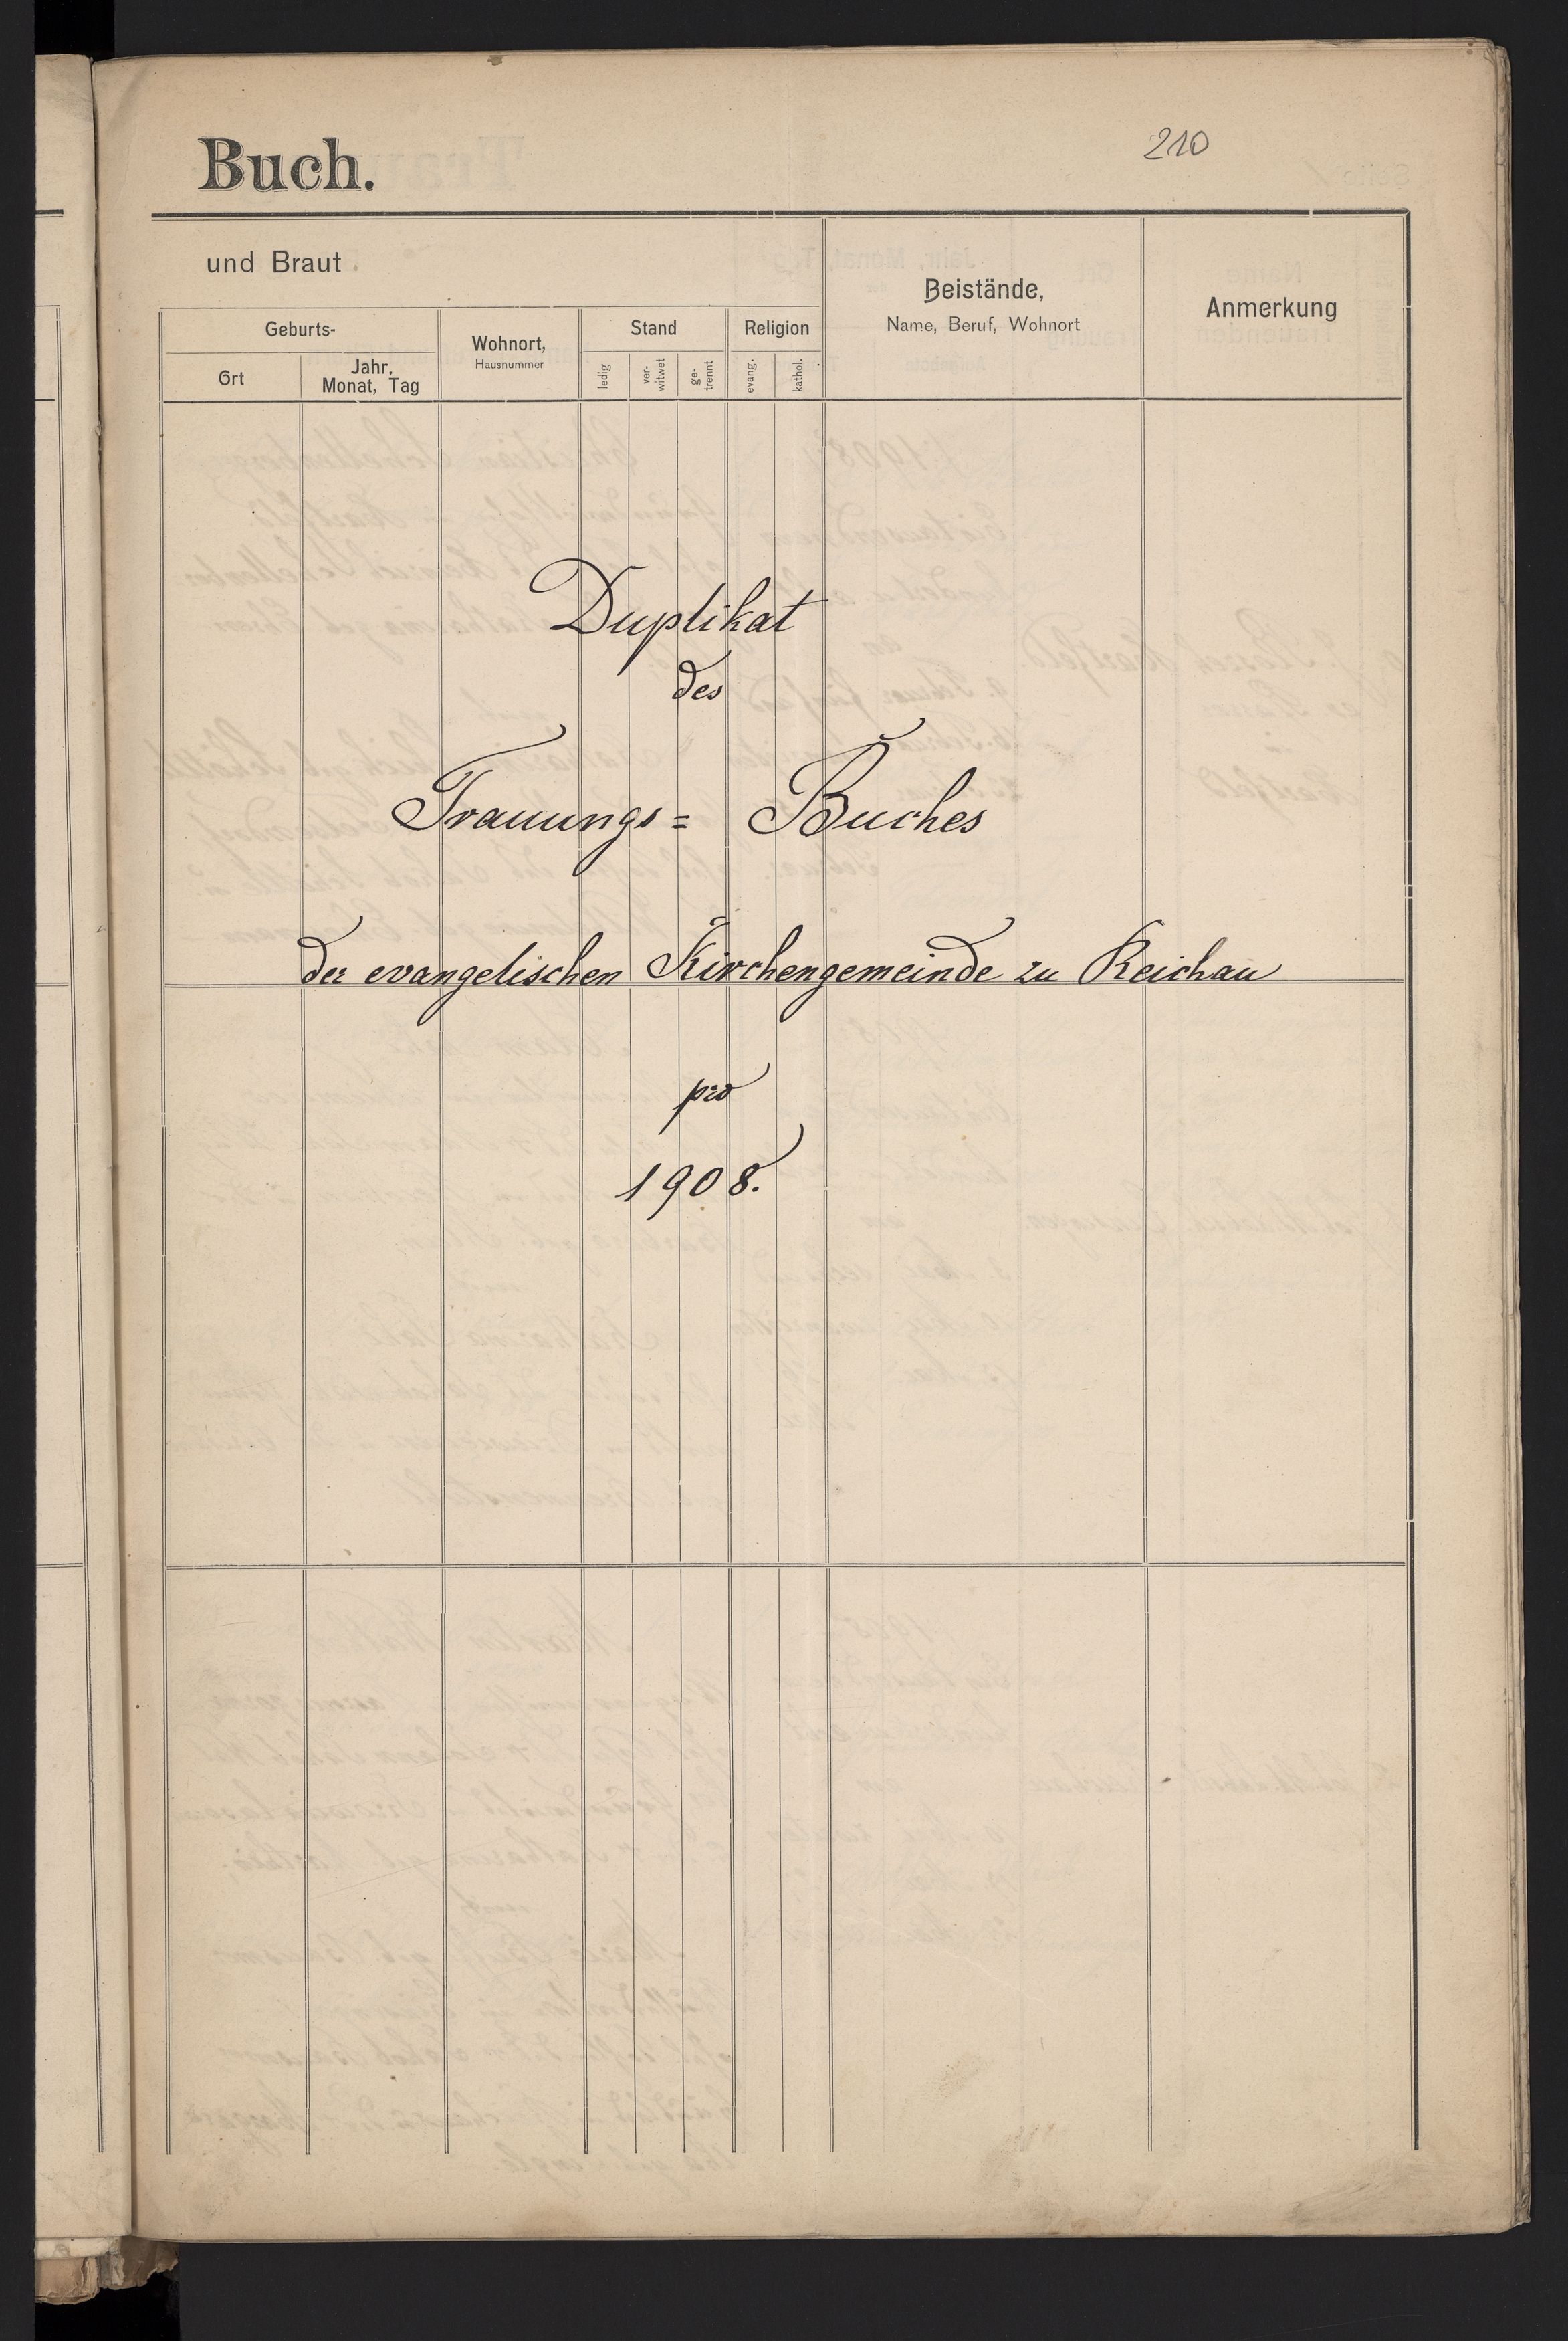 Buch.
210
und Braut
Geburts-
Ort
Jahr,
Monat, Tag
Wohnort,
Hausnummer
Stand
ledig
ver-
witwet
ge-
trennt
Religion
evang.
kathol.
Beistände,
Name, Beruf, Wohnort
Anmerkung
Duplikat
des
Trauungs= Buches
der evangelischen Kirchengemeinde zu Reichau
pro
1908.